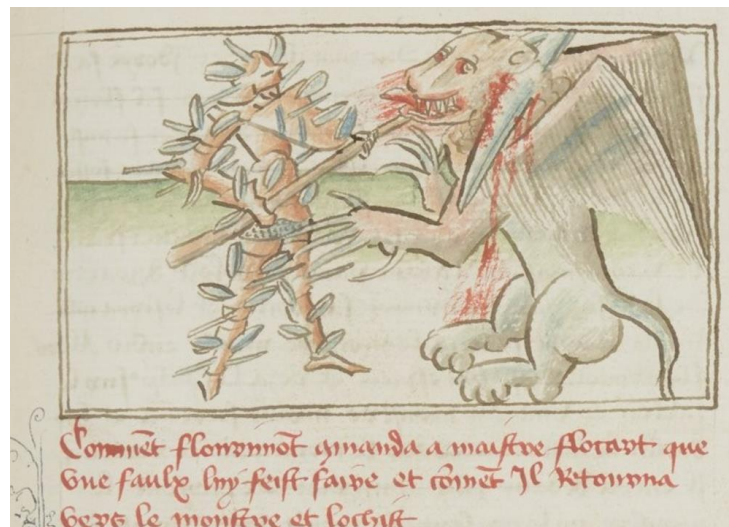 Comment flouronnōt ꝯmanda a maistre flocart que
vne faulx luy feist faire et cōmēt Il Retourna
vers le monstre et lochist